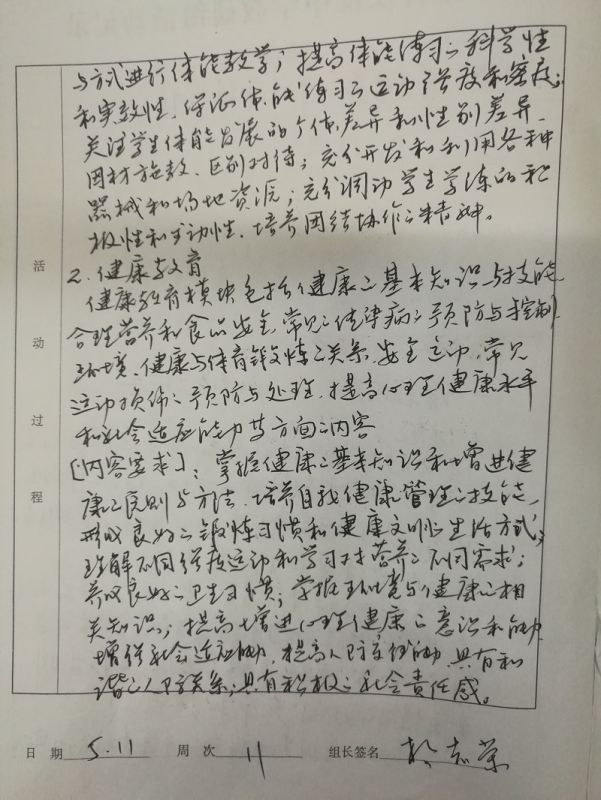 与方式进行体能教学；提高体能练习之科学性
和实效性，保证体能练习之运动强度和密度；
关注学生体能发展的个体差异和性别差异，
因材施教、区别对待；充分开发和利用各种
器械和场地资源；充分调动学生学练的积
极性和主动性，培养团结协作之精神。
2. 健康教育
健康教育模块包括健康之基本知识与技能，
合理营养和食品安全，常见之传染病之预防与控制，
环境、健康与体育锻炼之关系，安全运动，常见
运动损伤之预防与处理，提高心理健康水平
和社会适应能力等方面之内容
[内容要求]：掌握健康之基本知识和增进健
康之原则与方法，培养自我健康管理之技能，
形成良好之锻炼习惯和健康文明之生活方式；
理解不同强度运动和学习对营养之不同需求；
养成良好之卫生习惯；掌握环境与健康之相
关知识；提高增进心理健康之意识和能力，
增强社会适应能力，提高人际交往能力，具有和
谐之人际关系；具有积极之社会责任感。
活
动
过
程
日 期 5.11 周 次 11 组长签名